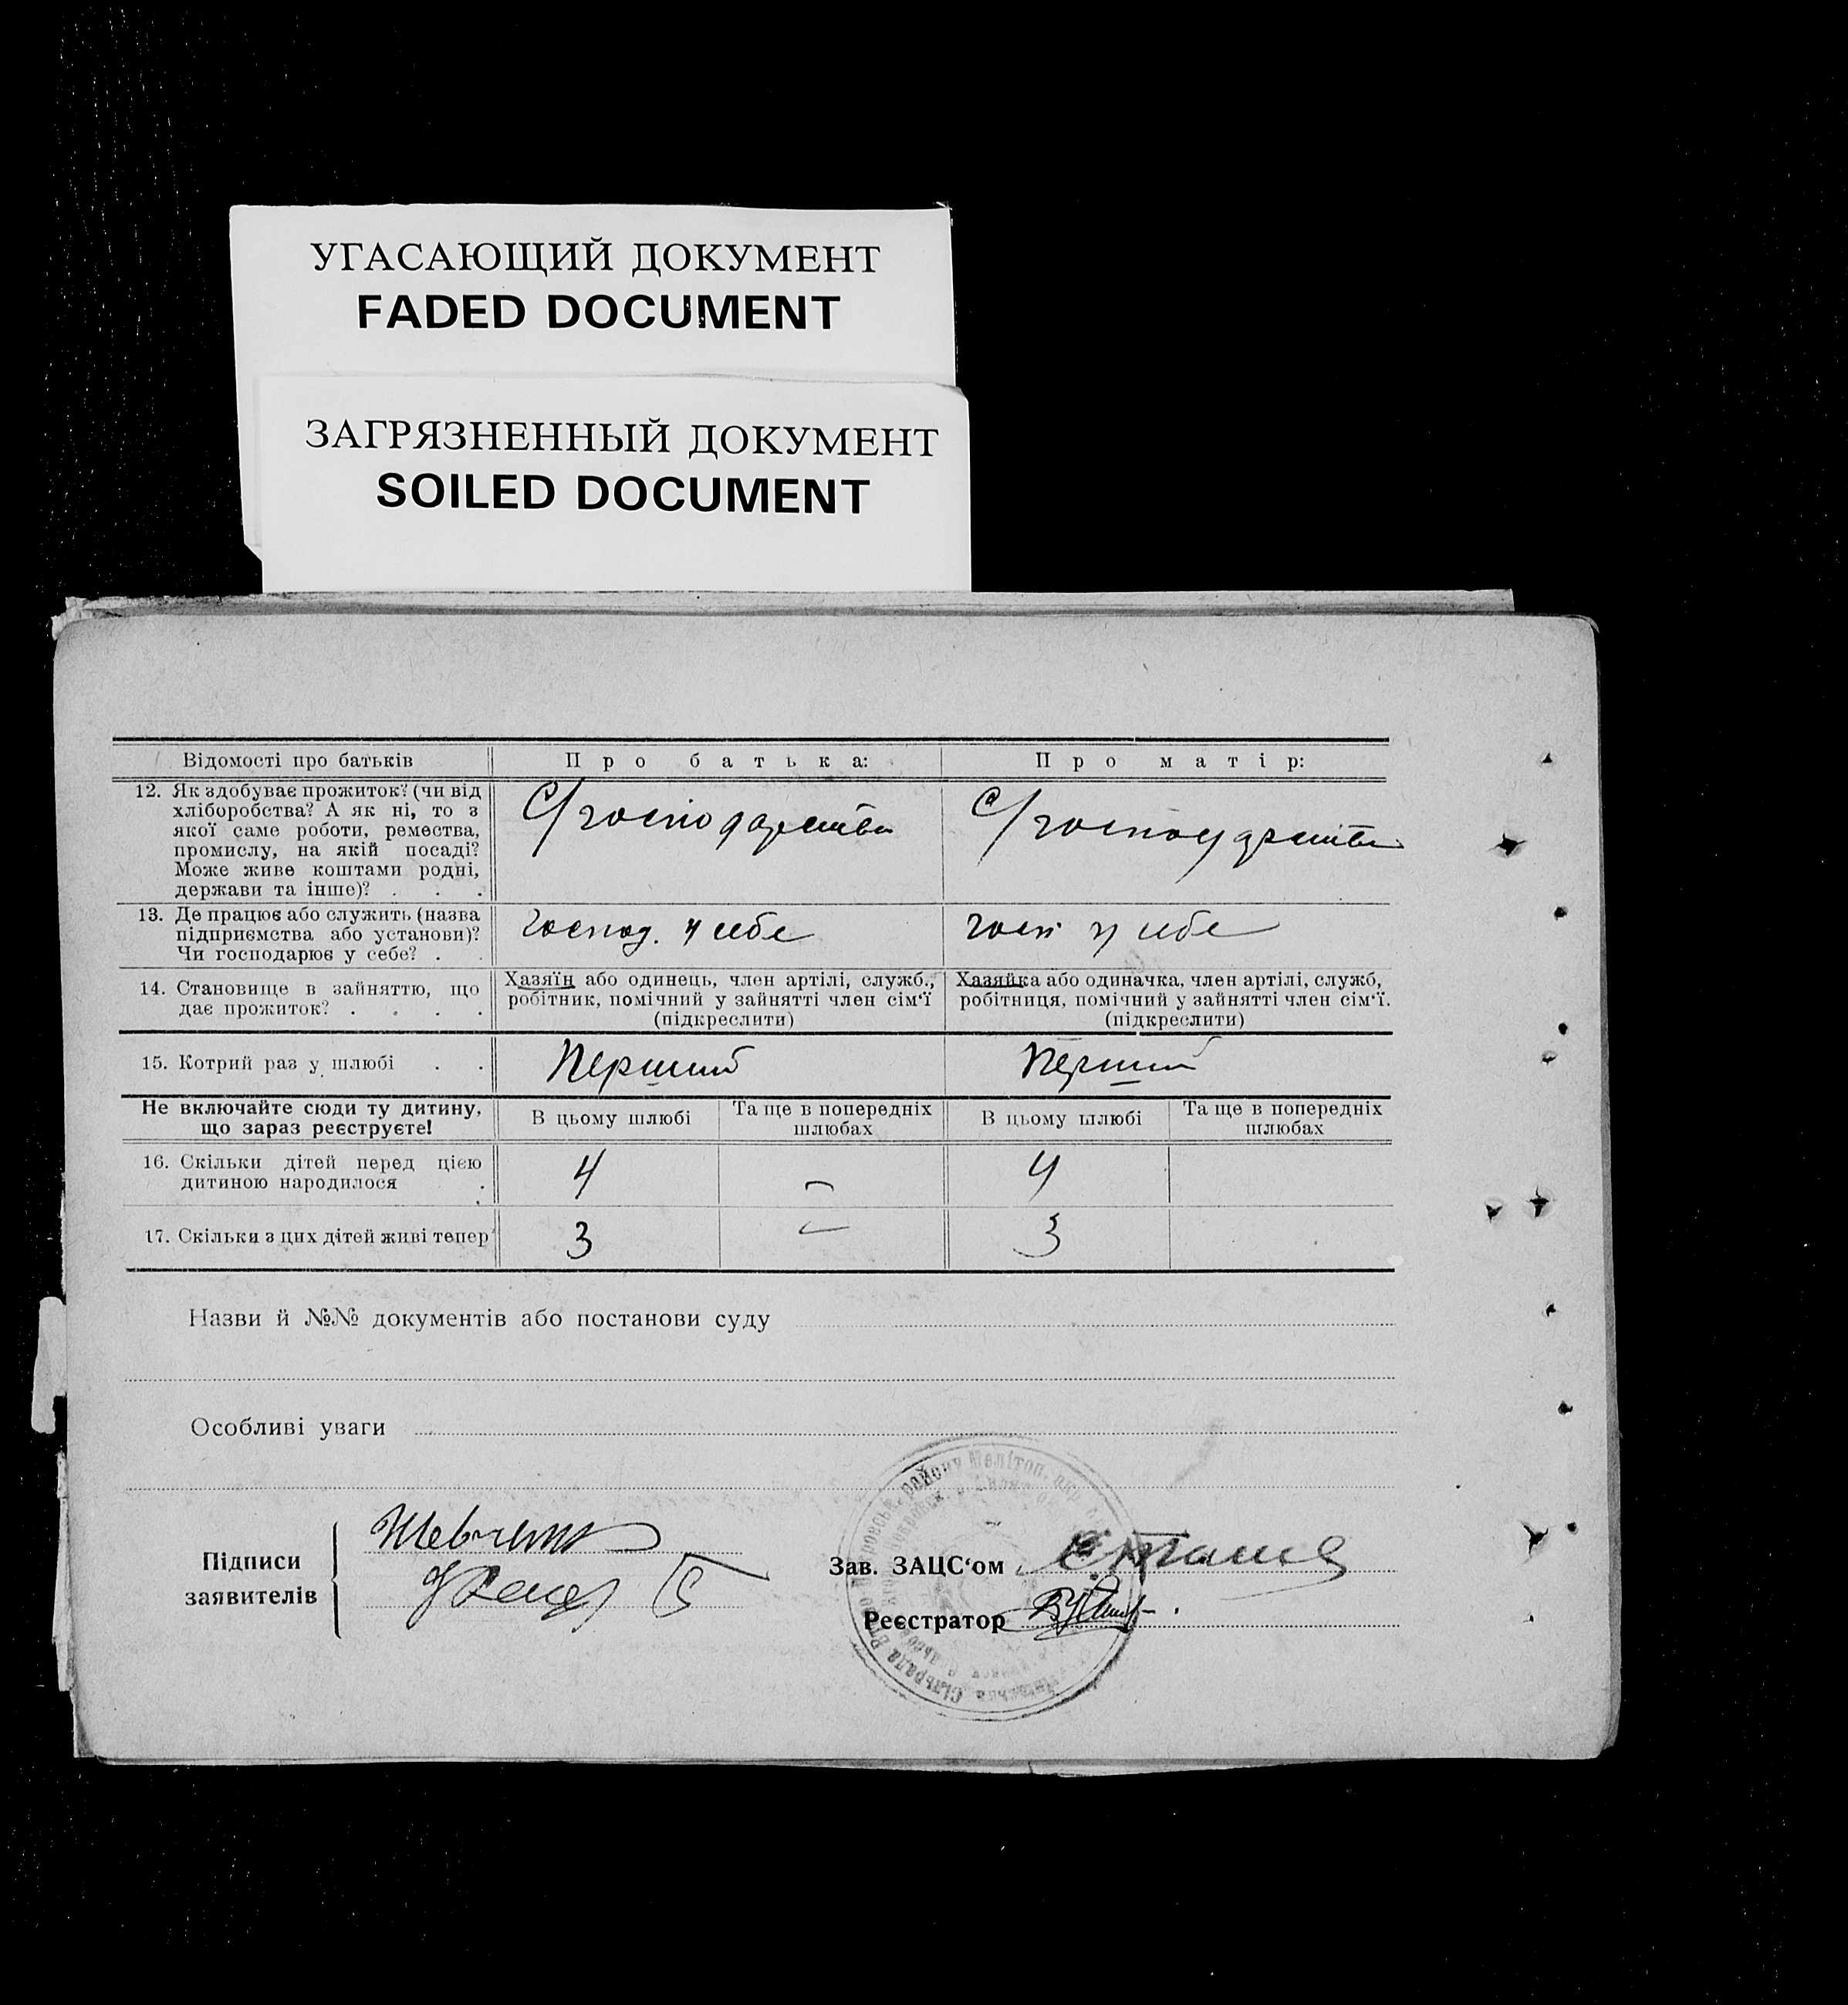 УГАСАЮЩИЙ ДОКУМЕНТ
FADED DOCUMENT
ЗАГРЯЗНЕННЫЙ ДОКУМЕНТ
SOILED DOCUMENT
Відомості про батьків
Про батька:
Про матір:
12. Як здобуває прожиток? (чи від
хліборобства? А як ні, то з
якої саме роботи, ремества,
промислу, на якій посаді?
Може живе коштами родні,
держави та інше)? . . .
С/господарства
С/господарства
13. Де працює або служить (назва
підприємства або установи)?
Чи господарює у себе? . .
господ. у себе
госп у себе
14. Становище в зайняттю, що
дає прожиток? . . . .
Хазяїн або одинець, член артілі, служб.,
робітник, помічний у зайнятті член сім'ї
(підкреслити)
Хазяйка або одиначка, член артілі, служб,
робітниця, помічний у зайнятті член сім'ї.
(підкреслити)
15. Котрий раз у шлюбі . .
Перший
Перший
Не включайте сюди ту дитину,
що зараз реєструєте!
В цьому шлюбі
Та ще в попередніх
шлюбах
В цьому шлюбі
Та ще в попередніх
шлюбах
16. Скільки дітей перед цією
дитиною народилося .
4
—
4
17. Скільки з цих дітей живі тепер
3
—
3
Назви й №№ документів або постанови суду
Особливі уваги
Підписи
заявителів
Зав. ЗАЦС'ом
Реєстратор
району Мелітоп. окр.
Сільрада